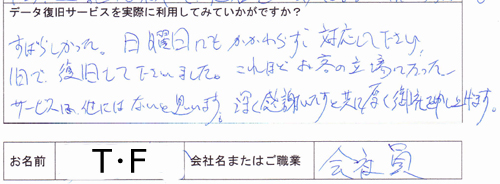 データ復旧サービスを実際に利用してみていかがですか？
すばらしかった。日曜日にもかかわらず、対応してくださり、
1日で復旧してくださいました。これほどお客の立場にたった
サービスは、他にはないと思います。深く感謝いたすと共に厚く御礼申し上げます。
お名前 T・F 会社名またはご職業 会社員